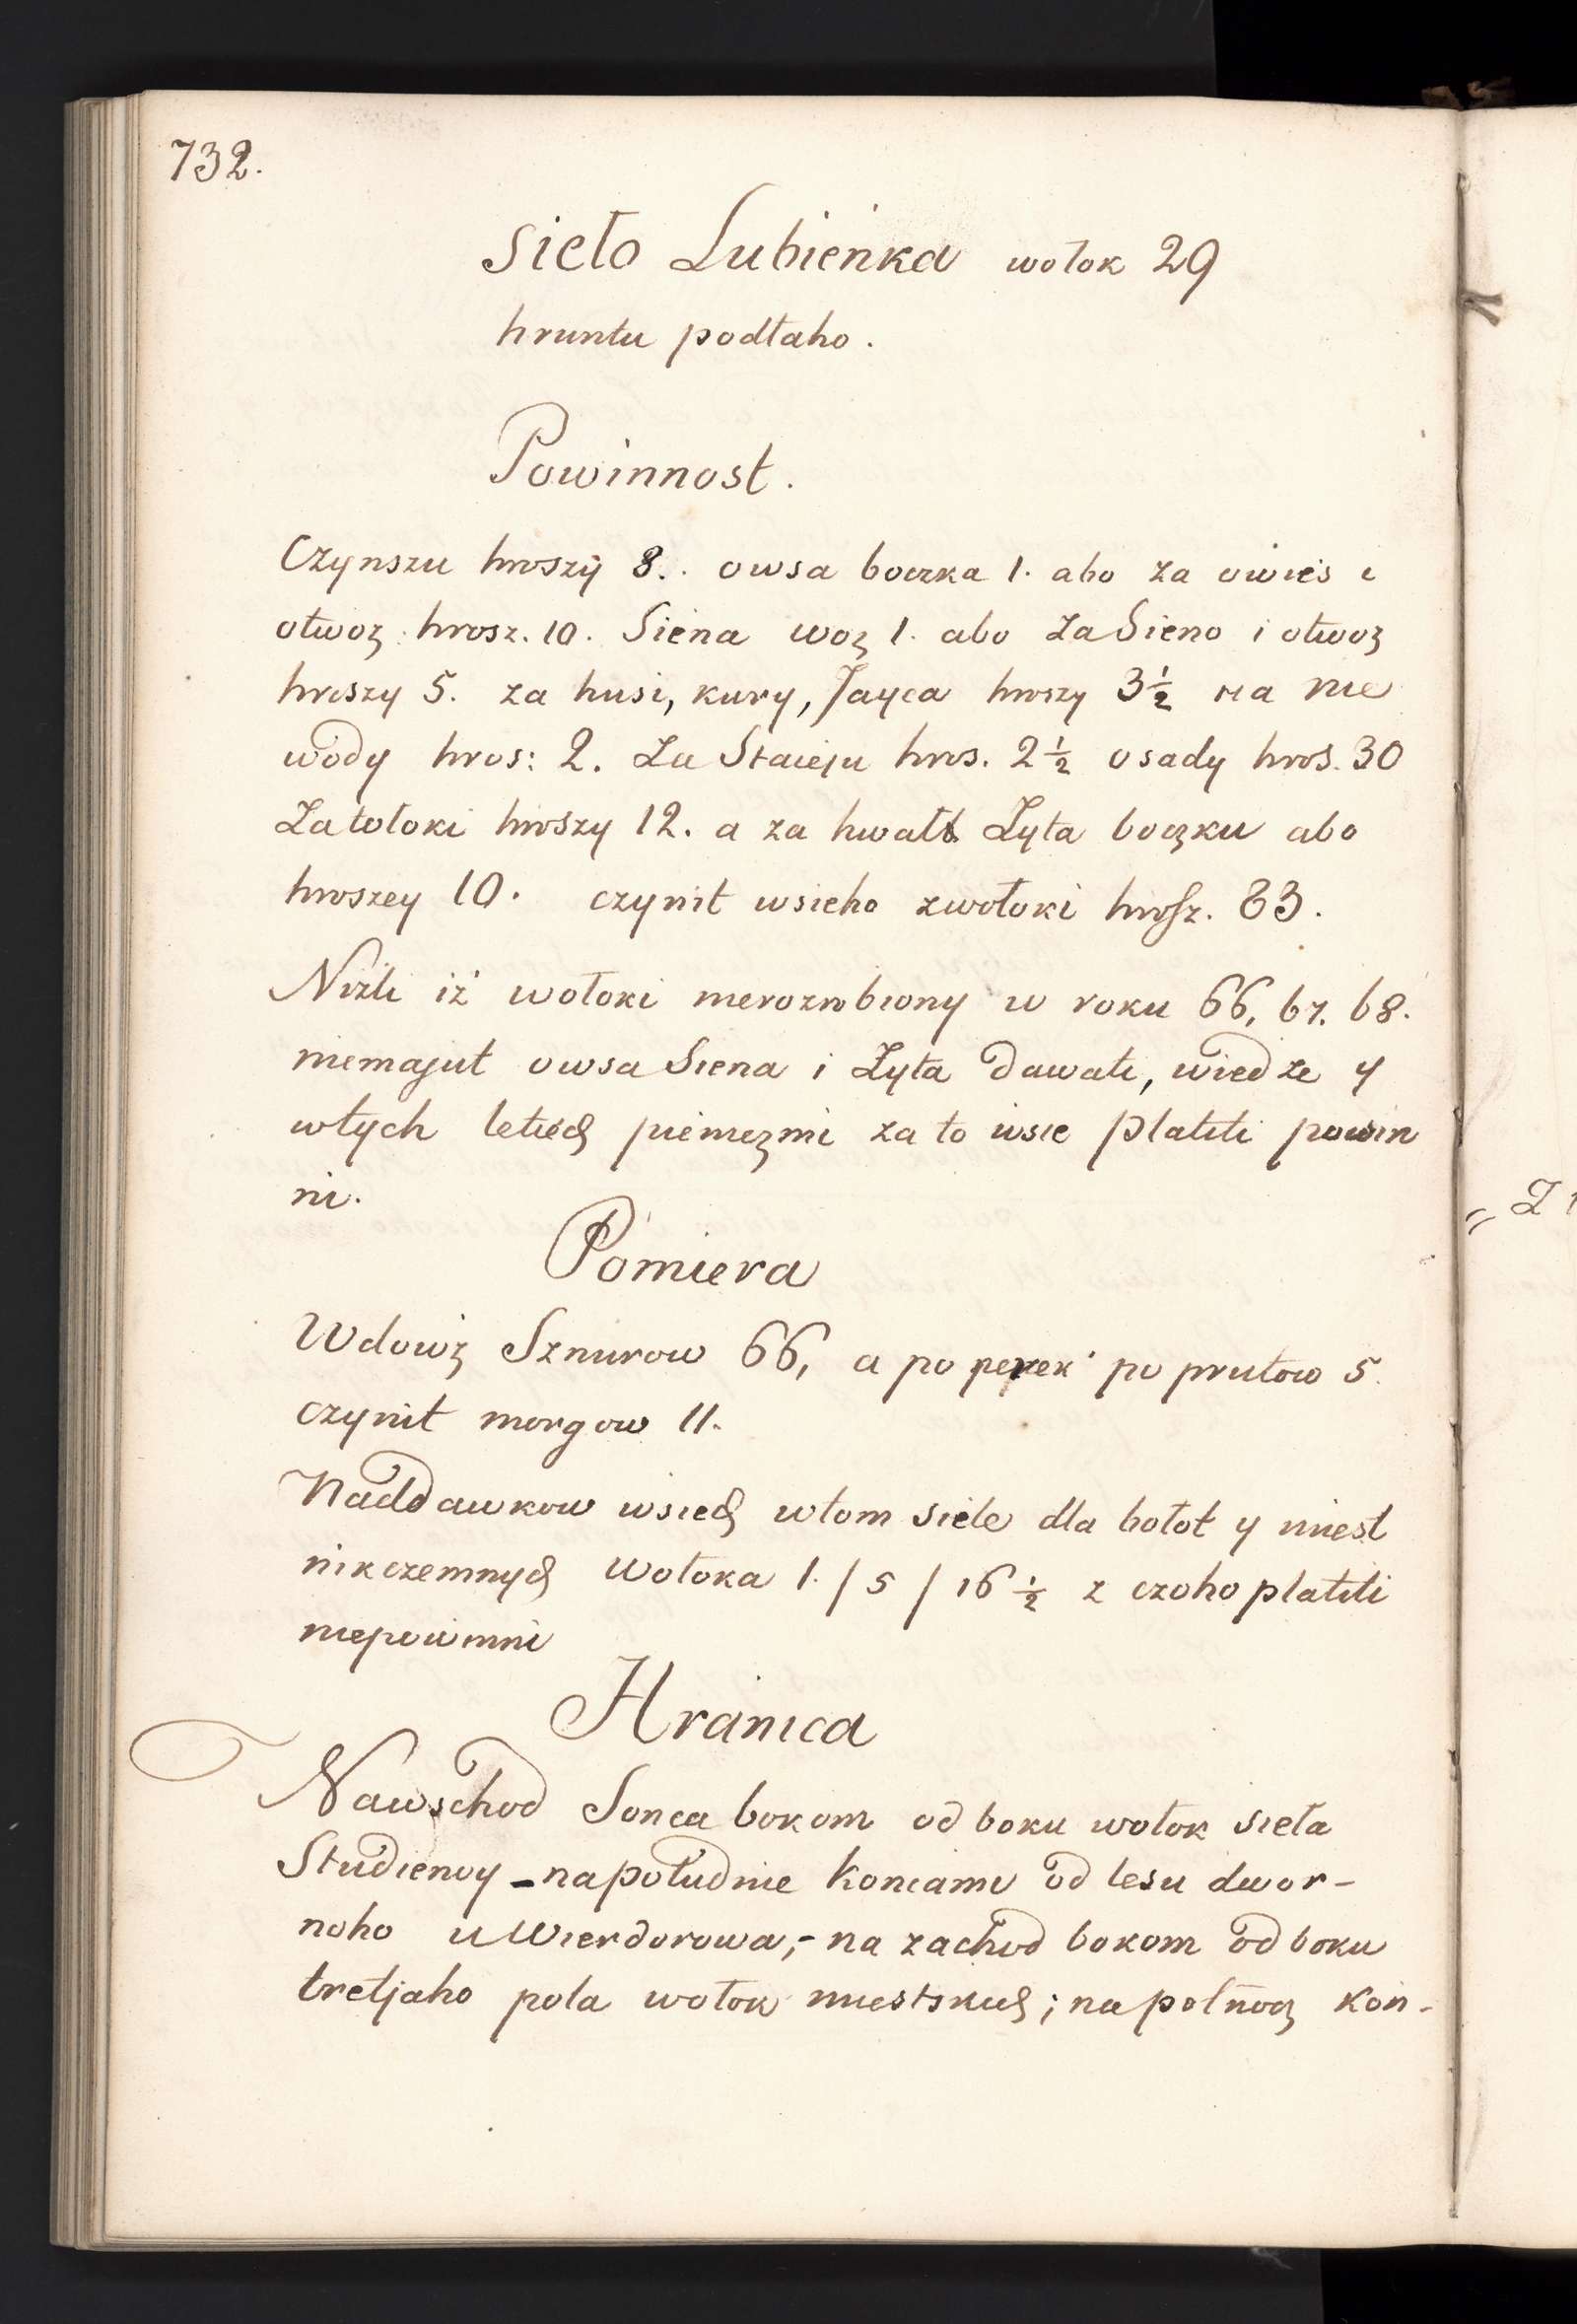 732.
Sieło Lubieńka wołok 29
hruntu podłaho.
Powinnost.
Czynszu hroszy 8.. owsa boczka 1. abo za owies i
otwoz hrosz. 10. Siena woz 1. abo za Sieno i otwoz
hroszy 5. za husi, kury, Jayca hroszy 3½ na nie
wody hros: 2. Za Staciju hros. 2½ osady hros. 30
Za tołoki hroszy 12. a za hwałt Żyta boczku abo
hroszey 10. czynit wsieho zwołoki hrosz. 83.
Niżli iż wołoki nierozrobiony w roku 66, 67. 68.
niemajut owsa Siena i Żyta dawati, wied że y
wtych letiech pieniezmi za to wsie płatiti powin
ni.
Pomiera
Wdowż Sznurow 66, a po perek po prutow 5.
czynit morgow 11.
Naddawkow wsiech wtom siele dla bołot y miest
nikczemnych Wołoka 1. / 5 / 16½ z czoho płatiti
niepowinni
Hranica
Nawschod Sonca bokom od boku wołok sieła
Studienoy - na południe Koncami od lesu dwor-
noho u Wierdorowa, - na zachod bokom od boku
tretjaho pola wołok miestskich; na połnocz Kon-
„ Z